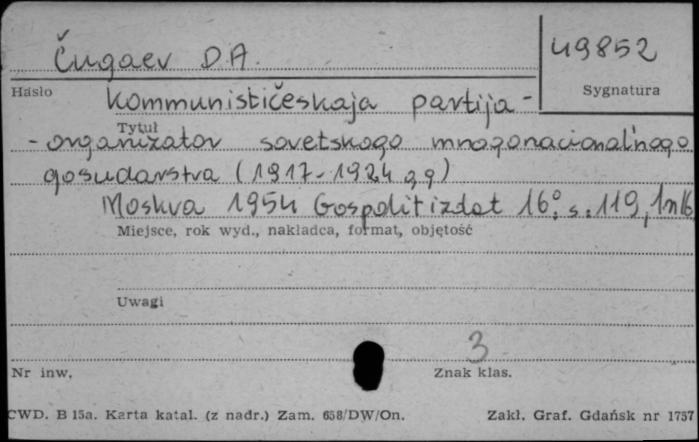 Čugaev D.A.
49852
Hasło
Sygnatura
Kommunističeskaja partija -
Tytuł
- organizator sovetskogo mnogonacional'nogo
gosudarstva (1917-1924 gg)
Moskva 1954 Gospolitizdat 16° s. 119, 1nlb
Miejsce, rok wyd., nakładca, format, objętość
Uwagi
3
Nr inw.
Znak klas.
CWD. B 15a. Karta katal. (z nadr.) Zam. 658/DW/On.
Zakł. Graf. Gdańsk nr 1757